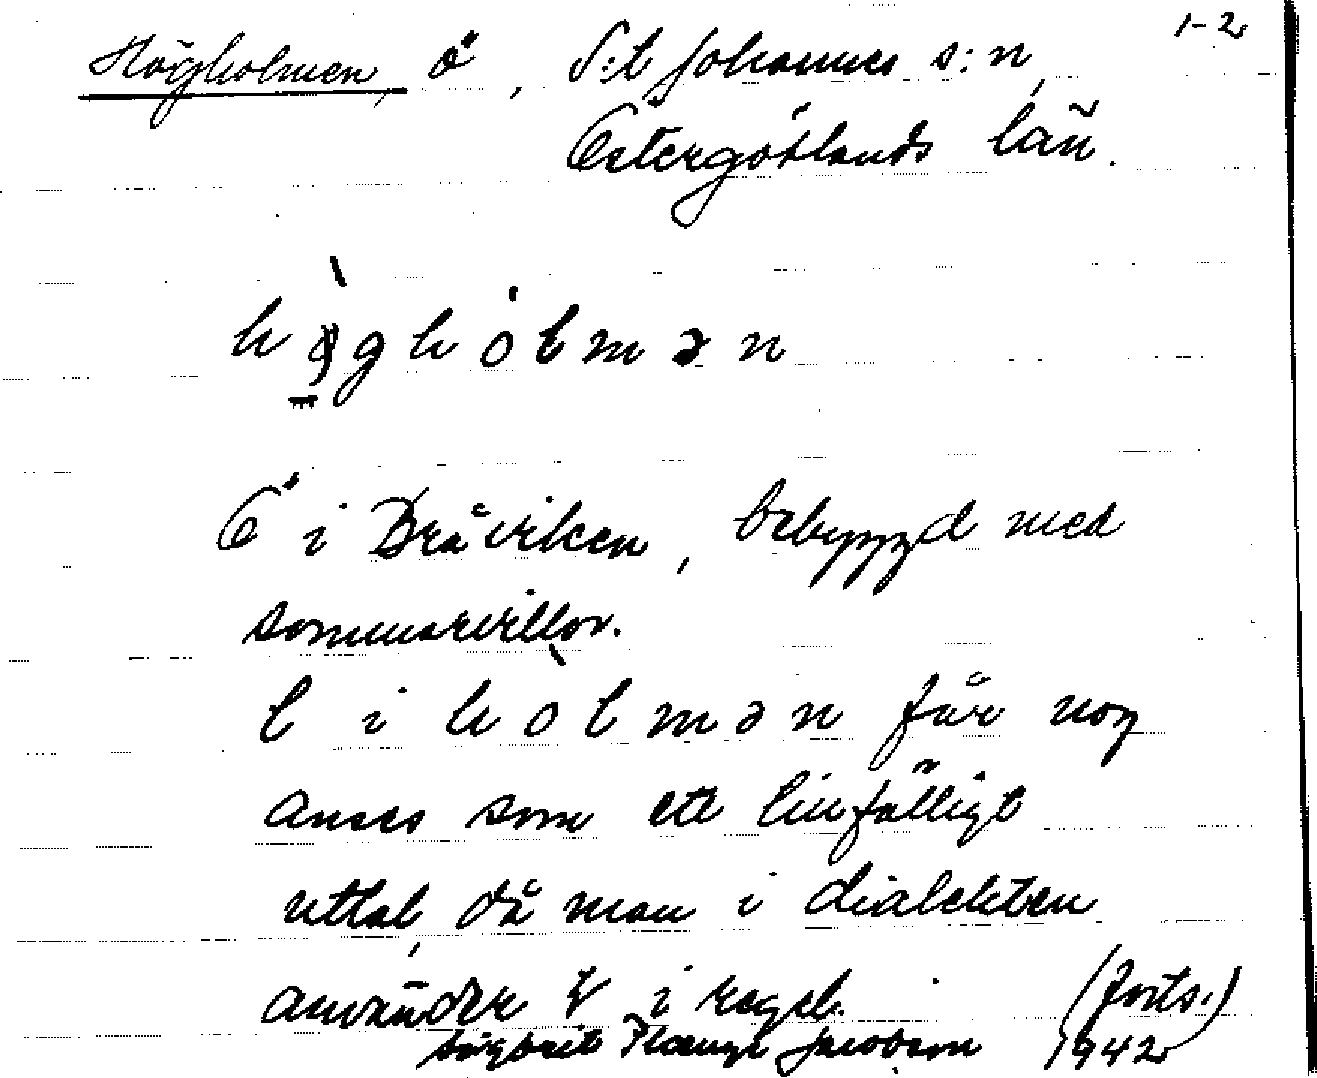 1-2
Högholmen, ö, S:t Johannes s:n,
Östergötlands län.
høgholmən
Ö i Bråviken, bebyggd med
sommarvillor.
l i holmən får nog
anses som ett tillfälligt
uttal, då man i dialekten
använder ł i regel. (forts.)
Ingbrit Jacobson 1942